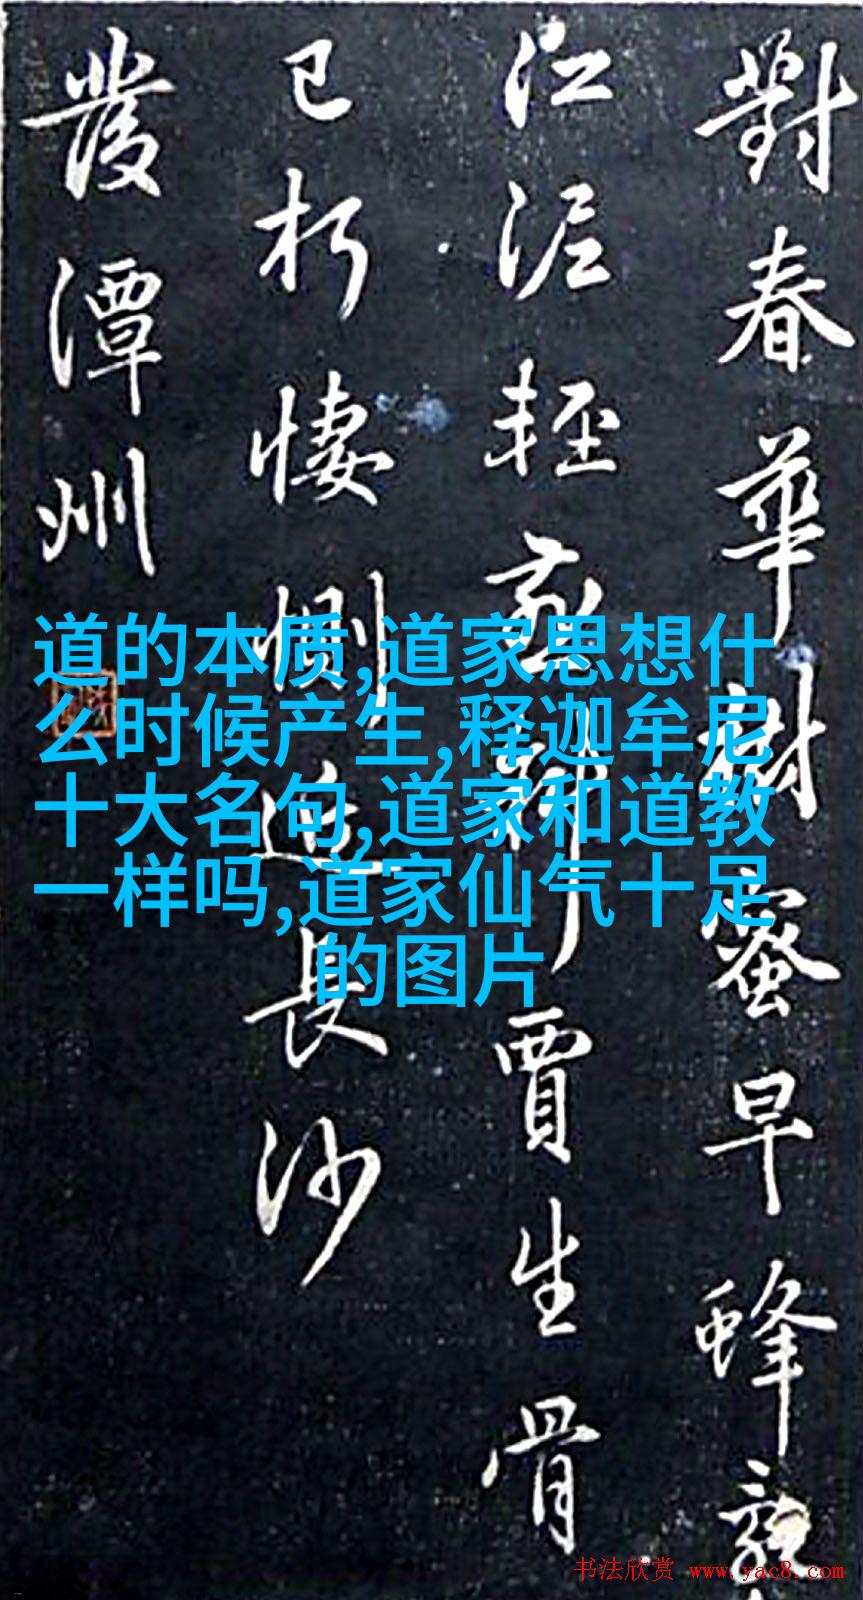 對春華樹蜜早蜂
江泥輕
賈生骨
已朽悽惻近長沙
發潭州
道的本质,道家思想什
么时候产生,释迦牟尼
十大名句,道家和道教
一样吗,道家仙气十足
的图片
书法欣赏 www.yac8.com